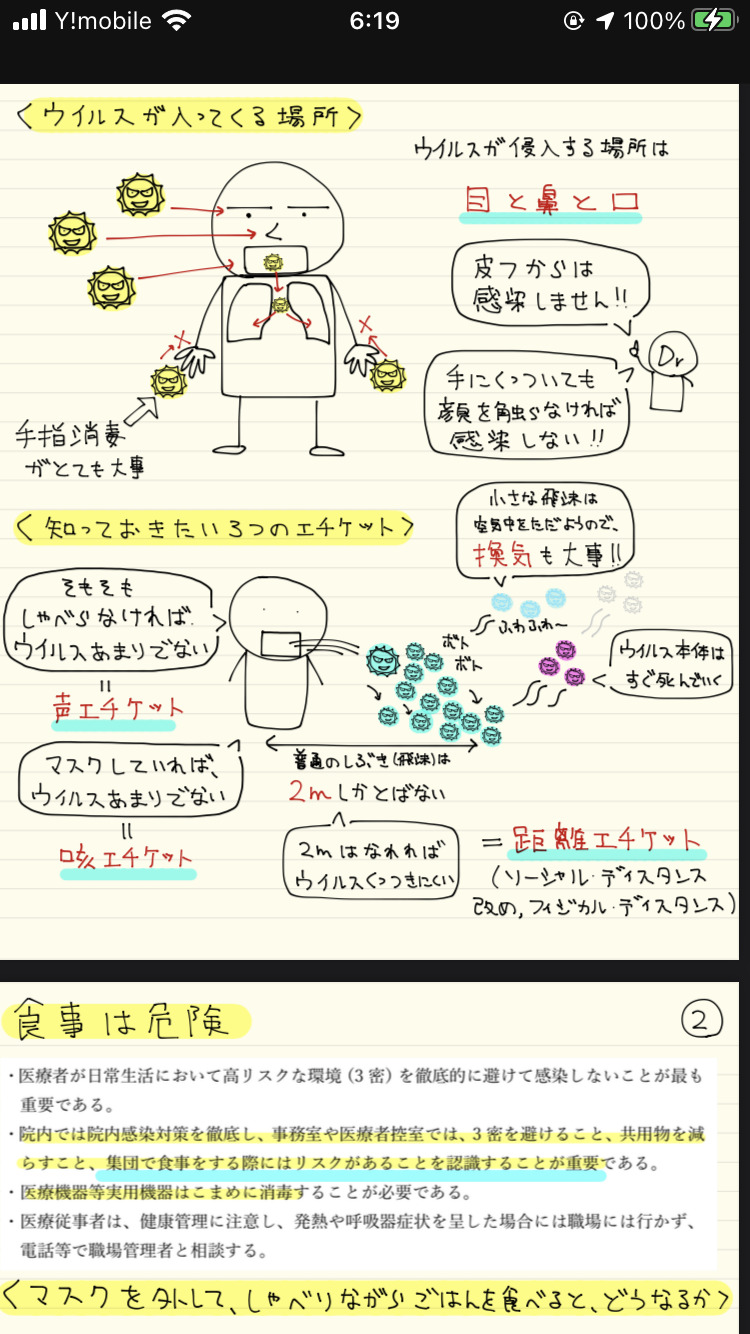 Y!mobile
6:19
100%
〈ウイルスが入ってくる場所〉
ウイルスが侵入する場所は
目と鼻と口
皮フからは
感染しません!!
Dr
手にくっついても
顔を触らなければ
感染しない!!
手指消毒
がとても大事
〈知っておきたい3つのエチケット〉
小さな飛沫は
空気中をただようので、
換気も大事!!
ふわふわ〜
そもそも
しゃべらなければ
ウイルスあまりでない
=
声エチケット
ボト
ボト
ウイルス本体は
すぐ死んでいく
マスクしていれば、
ウイルスあまりでない
=
咳エチケット
普通のしぶき(飛沫)は
2mしかとばない
2mはなれれば
ウイルスくっつきにくい
=距離エチケット
(ソーシャル・ディスタンス
改め,フィジカル・ディスタンス)
食事は危険
②
・医療者が日常生活において高リスクな環境(3密)を徹底的に避けて感染しないことが最も
重要である。
・院内では院内感染対策を徹底し、事務室や医療者控室では、3密を避けること、共用物を減
らすこと、集団で食事をする際にはリスクがあることを認識することが重要である。
・医療機器等実用機器はこまめに消毒することが必要である。
・医療従事者は、健康管理に注意し、発熱や呼吸器症状を呈した場合には職場には行かず、
電話等で職場管理者と相談する。
〈マスクを外して、しゃべりながらごはんを食べると、どうなるか〉